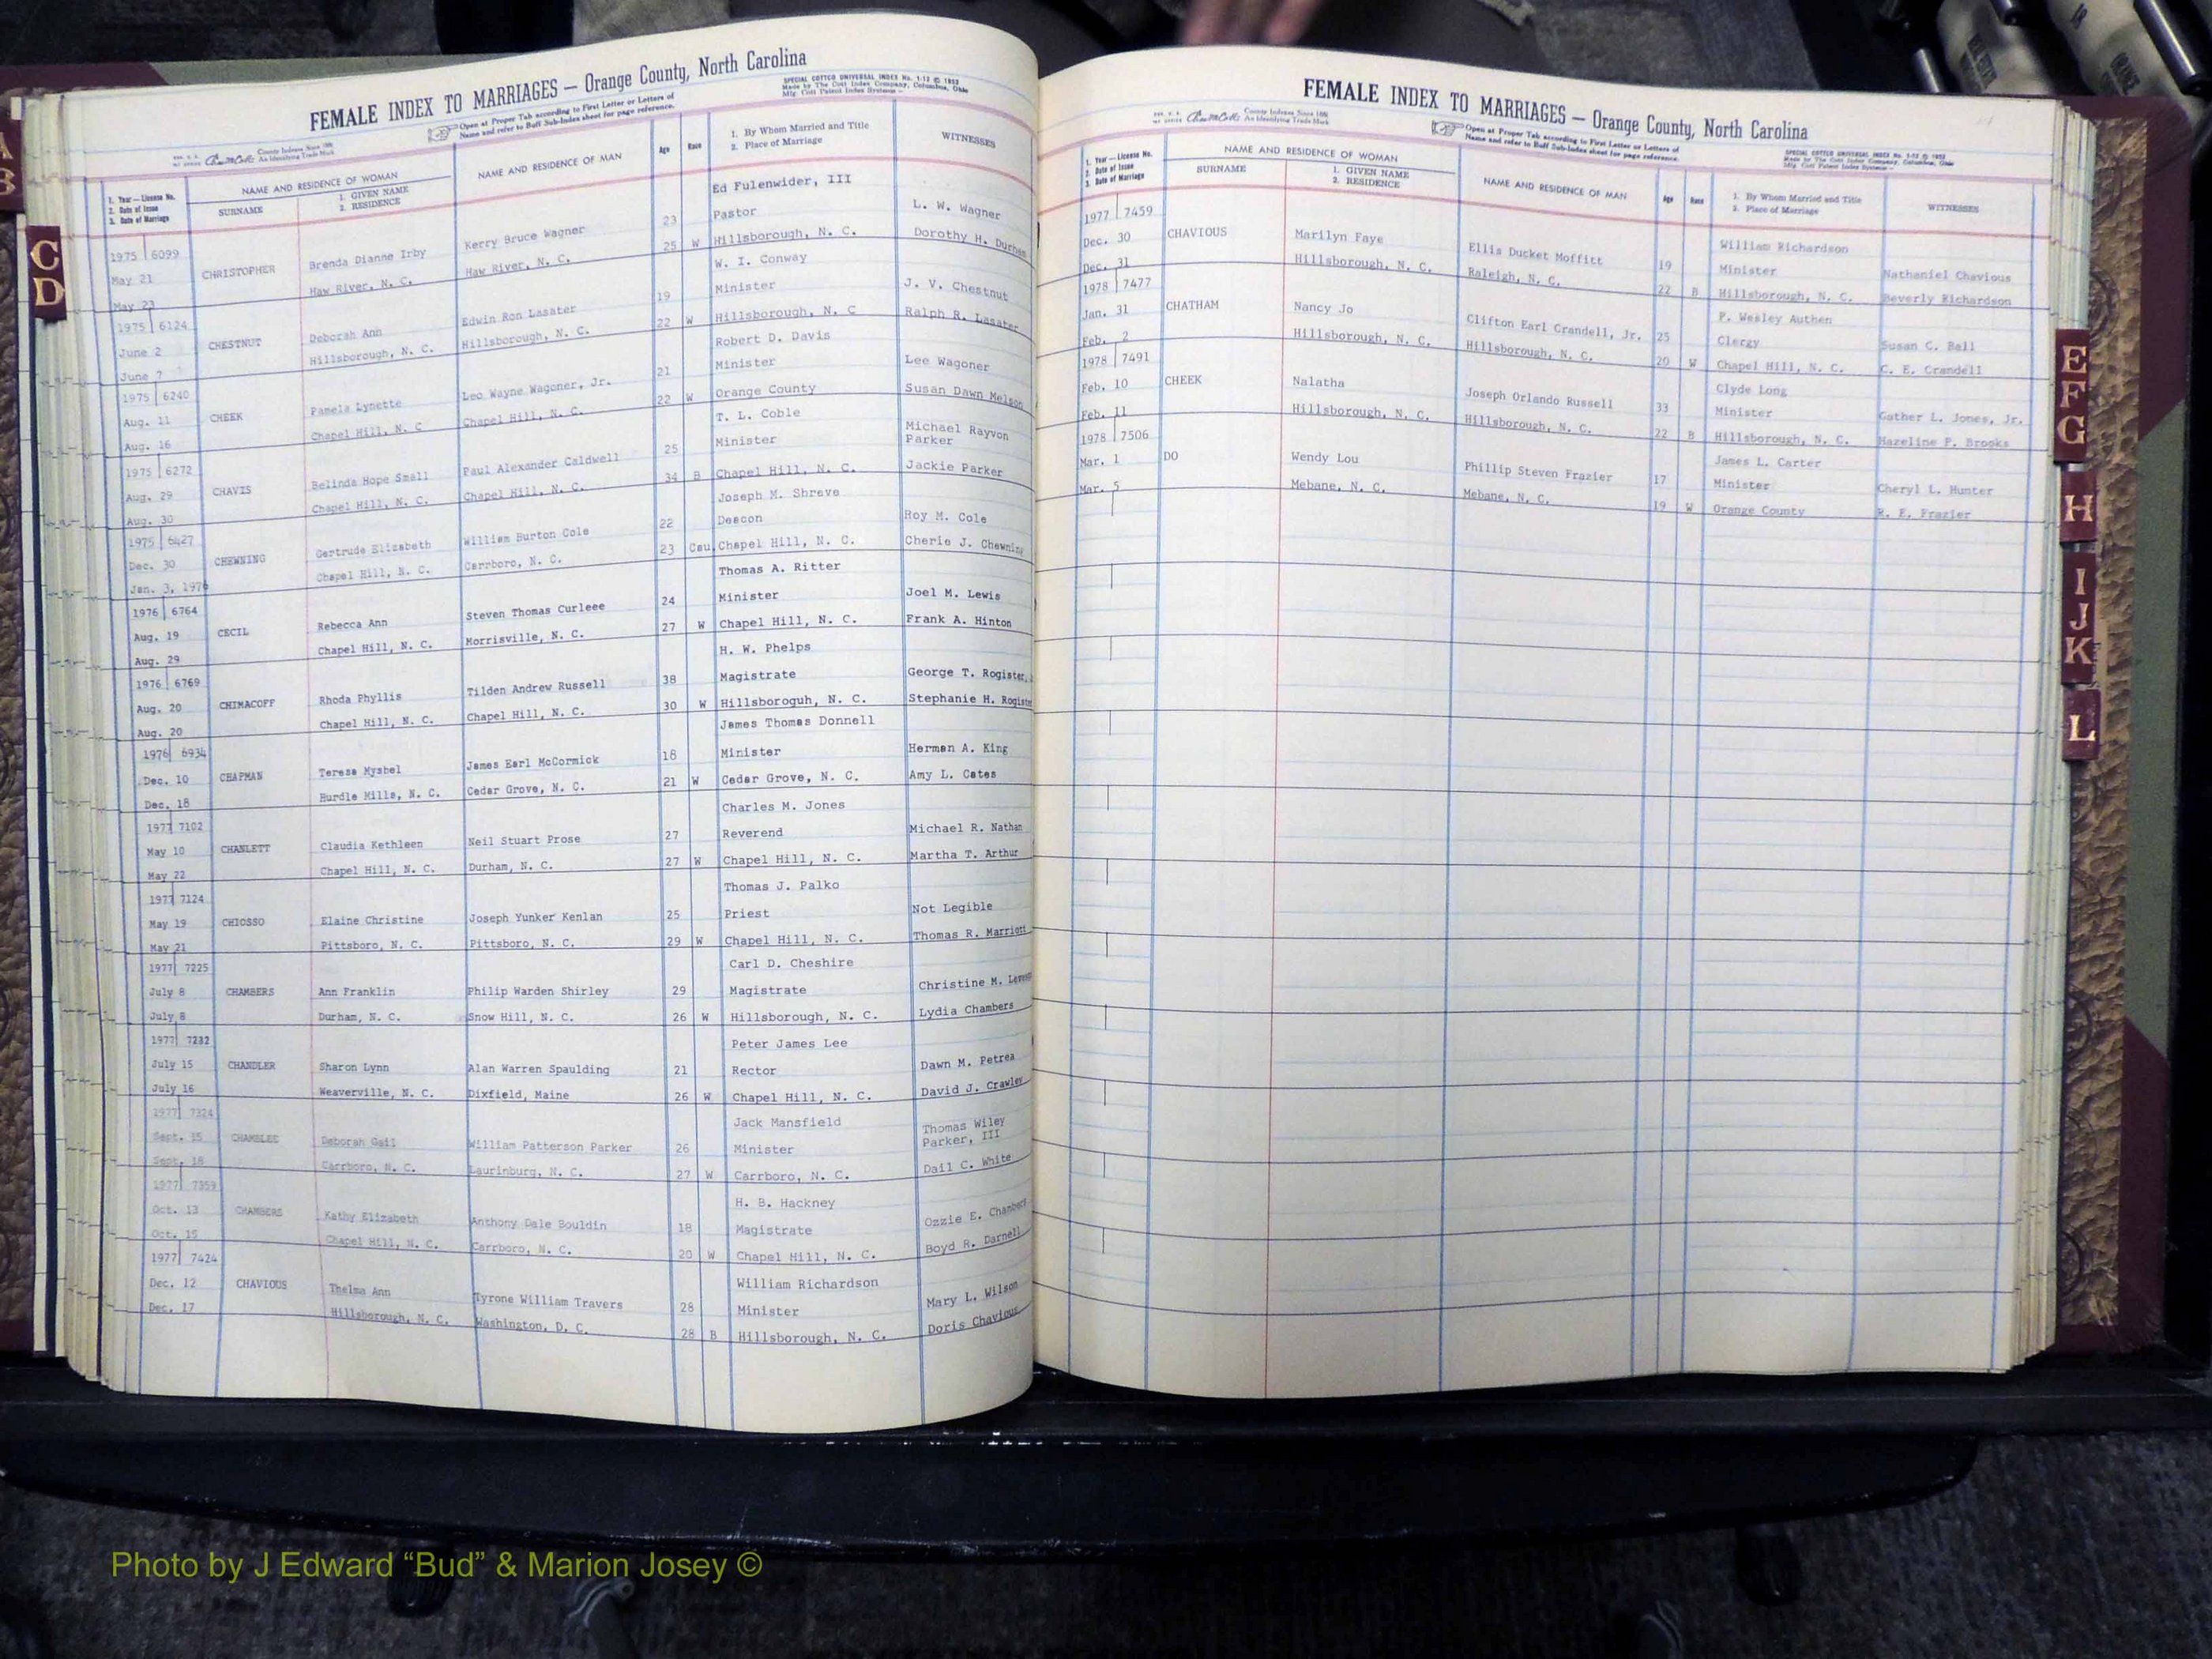 FEMALE INDEX TO MARRIAGES — Orange County, North Carolina
Open at Proper Tab according to First Letter or Letters of
Name and refer to Buff Sub-Index sheet for page reference.
SPECIAL COTTCO UNIVERSAL INDEX No. 1-12 © 1952
Made by The Cott Index Company, Columbus, Ohio
1. Year — License No.
2. Date of Issue
3. Date of Marriage
NAME AND RESIDENCE OF WOMAN
SURNAME
1. GIVEN NAME
2. RESIDENCE
NAME AND RESIDENCE OF MAN
Age
Race
1. By Whom Married and Title
2. Place of Marriage
WITNESSES
Ed Fulenwider, III
1975 6099 Kerry Bruce Wagner 23 Pastor L. W. Wagner
May 21 CHRISTOPHER Brenda Dianne Irby Haw River, N. C. 25 W Hillsborough, N. C. Dorothy H. Durham
May 23 Haw River, N. C.
W. I. Conway
1975 6124 Edwin Ron Lasater 19 Minister J. V. Chestnut
June 2 CHESTNUT Deborah Ann Hillsborough, N. C. 22 W Hillsborough, N. C Ralph R. Lasater
June 7 Hillsborough, N. C.
Robert D. Davis
1975 6240 Leo Wayne Wagoner, Jr. 21 Minister Lee Wagoner
Aug. 11 CHEEK Pamela Lynette Chapel Hill, N. C. 22 W Orange County Susan Dawn Melson
Aug. 16 Chapel Hill, N. C
T. L. Coble
1975 6272 Paul Alexander Caldwell 25 Minister Michael Rayvon Parker
Aug. 29 CHAVIS Belinda Hope Small Chapel Hill, N. C. 34 B Chapel Hill, N. C. Jackie Parker
Aug. 30 Chapel Hill, N. C.
Joseph M. Shreve
1975 6427 William Burton Cole 22 Deacon Roy M. Cole
Dec. 30 CHEWNING Gertrude Elizabeth Carrboro, N. C. 23 Cau. Chapel Hill, N. C. Cherie J. Chewning
Jan. 3, 1976 Chapel Hill, N. C.
Thomas A. Ritter
1976 6764 Steven Thomas Curleee 24 Minister Joel M. Lewis
Aug. 19 CECIL Rebecca Ann Morrisville, N. C. 27 W Chapel Hill, N. C. Frank A. Hinton
Aug. 29 Chapel Hill, N. C.
H. W. Phelps
1976 6769 Tilden Andrew Russell 38 Magistrate George T. Rogister,
Aug. 20 CHIMACOFF Rhoda Phyllis Chapel Hill, N. C. 30 W Hillsboroguh, N. C. Stephanie H. Rogister
Aug. 20 Chapel Hill, N. C.
James Thomas Donnell
1976 6934 James Earl McCormick 18 Minister Herman A. King
Dec. 10 CHAPMAN Teresa Mysbel Cedar Grove, N. C. 21 W Cedar Grove, N. C. Amy L. Cates
Dec. 18 Hurdle Mills, N. C.
Charles M. Jones
1977 7102 Neil Stuart Prose 27 Reverend Michael R. Nathan
May 10 CHANLETT Claudia Kethleen Durham, N. C. 27 W Chapel Hill, N. C. Martha T. Arthur
May 22 Chapel Hill, N. C.
Thomas J. Palko
1977 7124
May 19 CHIOSSO Elaine Christine Joseph Yunker Kenlan 25 Priest Not Legible
May 21 Pittsboro, N. C. Pittsboro, N. C. 29 W Chapel Hill, N. C. Thomas R. Marriott
1977 7225 Carl D. Cheshire
July 8 CHAMBERS Ann Franklin Philip Warden Shirley 29 Magistrate Christine M.
July 8 Durham, N. C. Snow Hill, N. C. 26 W Hillsborough, N. C. Lydia Chambers
1977 7232 Peter James Lee
July 15 CHANDLER Sharon Lynn Alan Warren Spaulding 21 Rector Dawn M. Petrea
July 16 Weaverville, N. C. Dixfield, Maine 26 W Chapel Hill, N. C. David J. Crawley
1977 7324 Jack Mansfield
Sept. 15 CHAMBLEE Deborah Gail William Patterson Parker 26 Minister Thomas Wiley Parker, III
Sept. 18 Carrboro, N. C. Laurinburg, N. C. 27 W Carrboro, N. C. Dail C. White
1977 7359 H. B. Hackney
Oct. 13 CHAMBERS Kathy Elizabeth Anthony Dale Bouldin 18 Magistrate Ozzie E. Chambers
Oct. 15 Chapel Hill, N. C. Carrboro, N. C. 20 W Chapel Hill, N. C. Boyd R. Darnell
1977 7424 William Richardson
Dec. 12 CHAVIOUS Thelma Ann Tyrone William Travers 28 Minister Mary L. Wilson
Dec. 17 Hillsborough, N. C. Washington, D. C. 28 B Hillsborough, N. C. Doris Chavious
FEMALE INDEX TO MARRIAGES — Orange County, North Carolina
Open at Proper Tab according to First Letter or Letters of
Name and refer to Buff Sub-Index sheet for page reference.
SPECIAL COTTCO UNIVERSAL INDEX No. 1-12 © 1952
Made by The Cott Index Company, Columbus, Ohio
1. Year — License No.
2. Date of Issue
3. Date of Marriage
NAME AND RESIDENCE OF WOMAN
SURNAME
1. GIVEN NAME
2. RESIDENCE
NAME AND RESIDENCE OF MAN
Age
Race
1. By Whom Married and Title
2. Place of Marriage
WITNESSES
1977 7459 William Richardson
Dec. 30 CHAVIOUS Marilyn Faye Ellis Ducket Moffitt 19 Minister Nathaniel Chavious
Dec. 31 Hillsborough, N. C. Raleigh, N. C. 22 B Hillsborough, N. C. Beverly Richardson
1978 7477 P. Wesley Authen
Jan. 31 CHATHAM Nancy Jo Clifton Earl Crandell, Jr. 25 Clergy Susan C. Ball
Feb. 2 Hillsborough, N. C. Hillsborough, N. C. 20 W Chapel Hill, N. C. C. E. Crandell
1978 7491 Clyde Long
Feb. 10 CHEEK Nalatha Joseph Orlando Russell 33 Minister Gather L. Jones, Jr.
Feb. 11 Hillsborough, N. C. Hillsborough, N. C. 22 B Hillsborough, N. C. Hazeline P. Brooks
1978 7506 James L. Carter
Mar. 1 DO Wendy Lou Phillip Steven Frazier 17 Minister Cheryl L. Hunter
Mar. 5 Mebane, N. C. Mebane, N. C. 19 W Orange County R. E. Frazier
C
D
E
F
G
H
I
J
K
L
Photo by J Edward “Bud” & Marion Josey ©